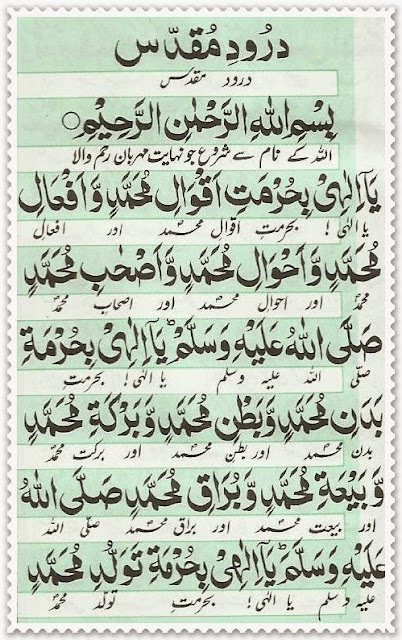 درود مقدّس
درود مقدس
بِسْمِ اللهِ الرَّحْمٰنِ الرَّحِيْمِ ○
اللہ کے نام سے شروع جو نہایت مہربان رحم والا
يَآ اِلٰهِيْ بِحُرْمَتِ اَقْوَالِ مُحَمَّدٍ وَّ اَفْعَالِ
یا الٰہی ! بحرمتِ اقوالِ محمد اور افعال
مُحَمَّدٍ وَّ اَحْوَالِ مُحَمَّدٍ وَّ اَصْحٰبِ مُحَمَّدٍ
محمدؐ اور احوال محمد اور اصحاب محمدؐ
صَلَّى اللهُ عَلَيْهِ وَسَلَّمَ ؕ يَآ اِلٰهِيْ بِحُرْمَةِ
صلّی اللہ علیہ وسلم یا الٰہی! بحرمتِ
بَدَنِ مُحَمَّدٍ وَّ بَطْنِ مُحَمَّدٍ وَّ بَرْكَةِ مُحَمَّدٍ
بدن محمد اور بطنِ محمد اور برکت محمدؐ
وَّ بَيْعَةِ مُحَمَّدٍ وَّ بُرَاقِ مُحَمَّدٍ صَلَّى اللهُ
اور بیعت محمد اور براق محمد صلّی اللہ
عَلَيْهِ وَسَلَّمَ ؕ يَآ اِلٰهِيْ بِحُرْمَةِ تَوَلُّدِ مُحَمَّدٍ
علیہ وسلم یا الٰہی! بحرمتِ تولد محمدؐ